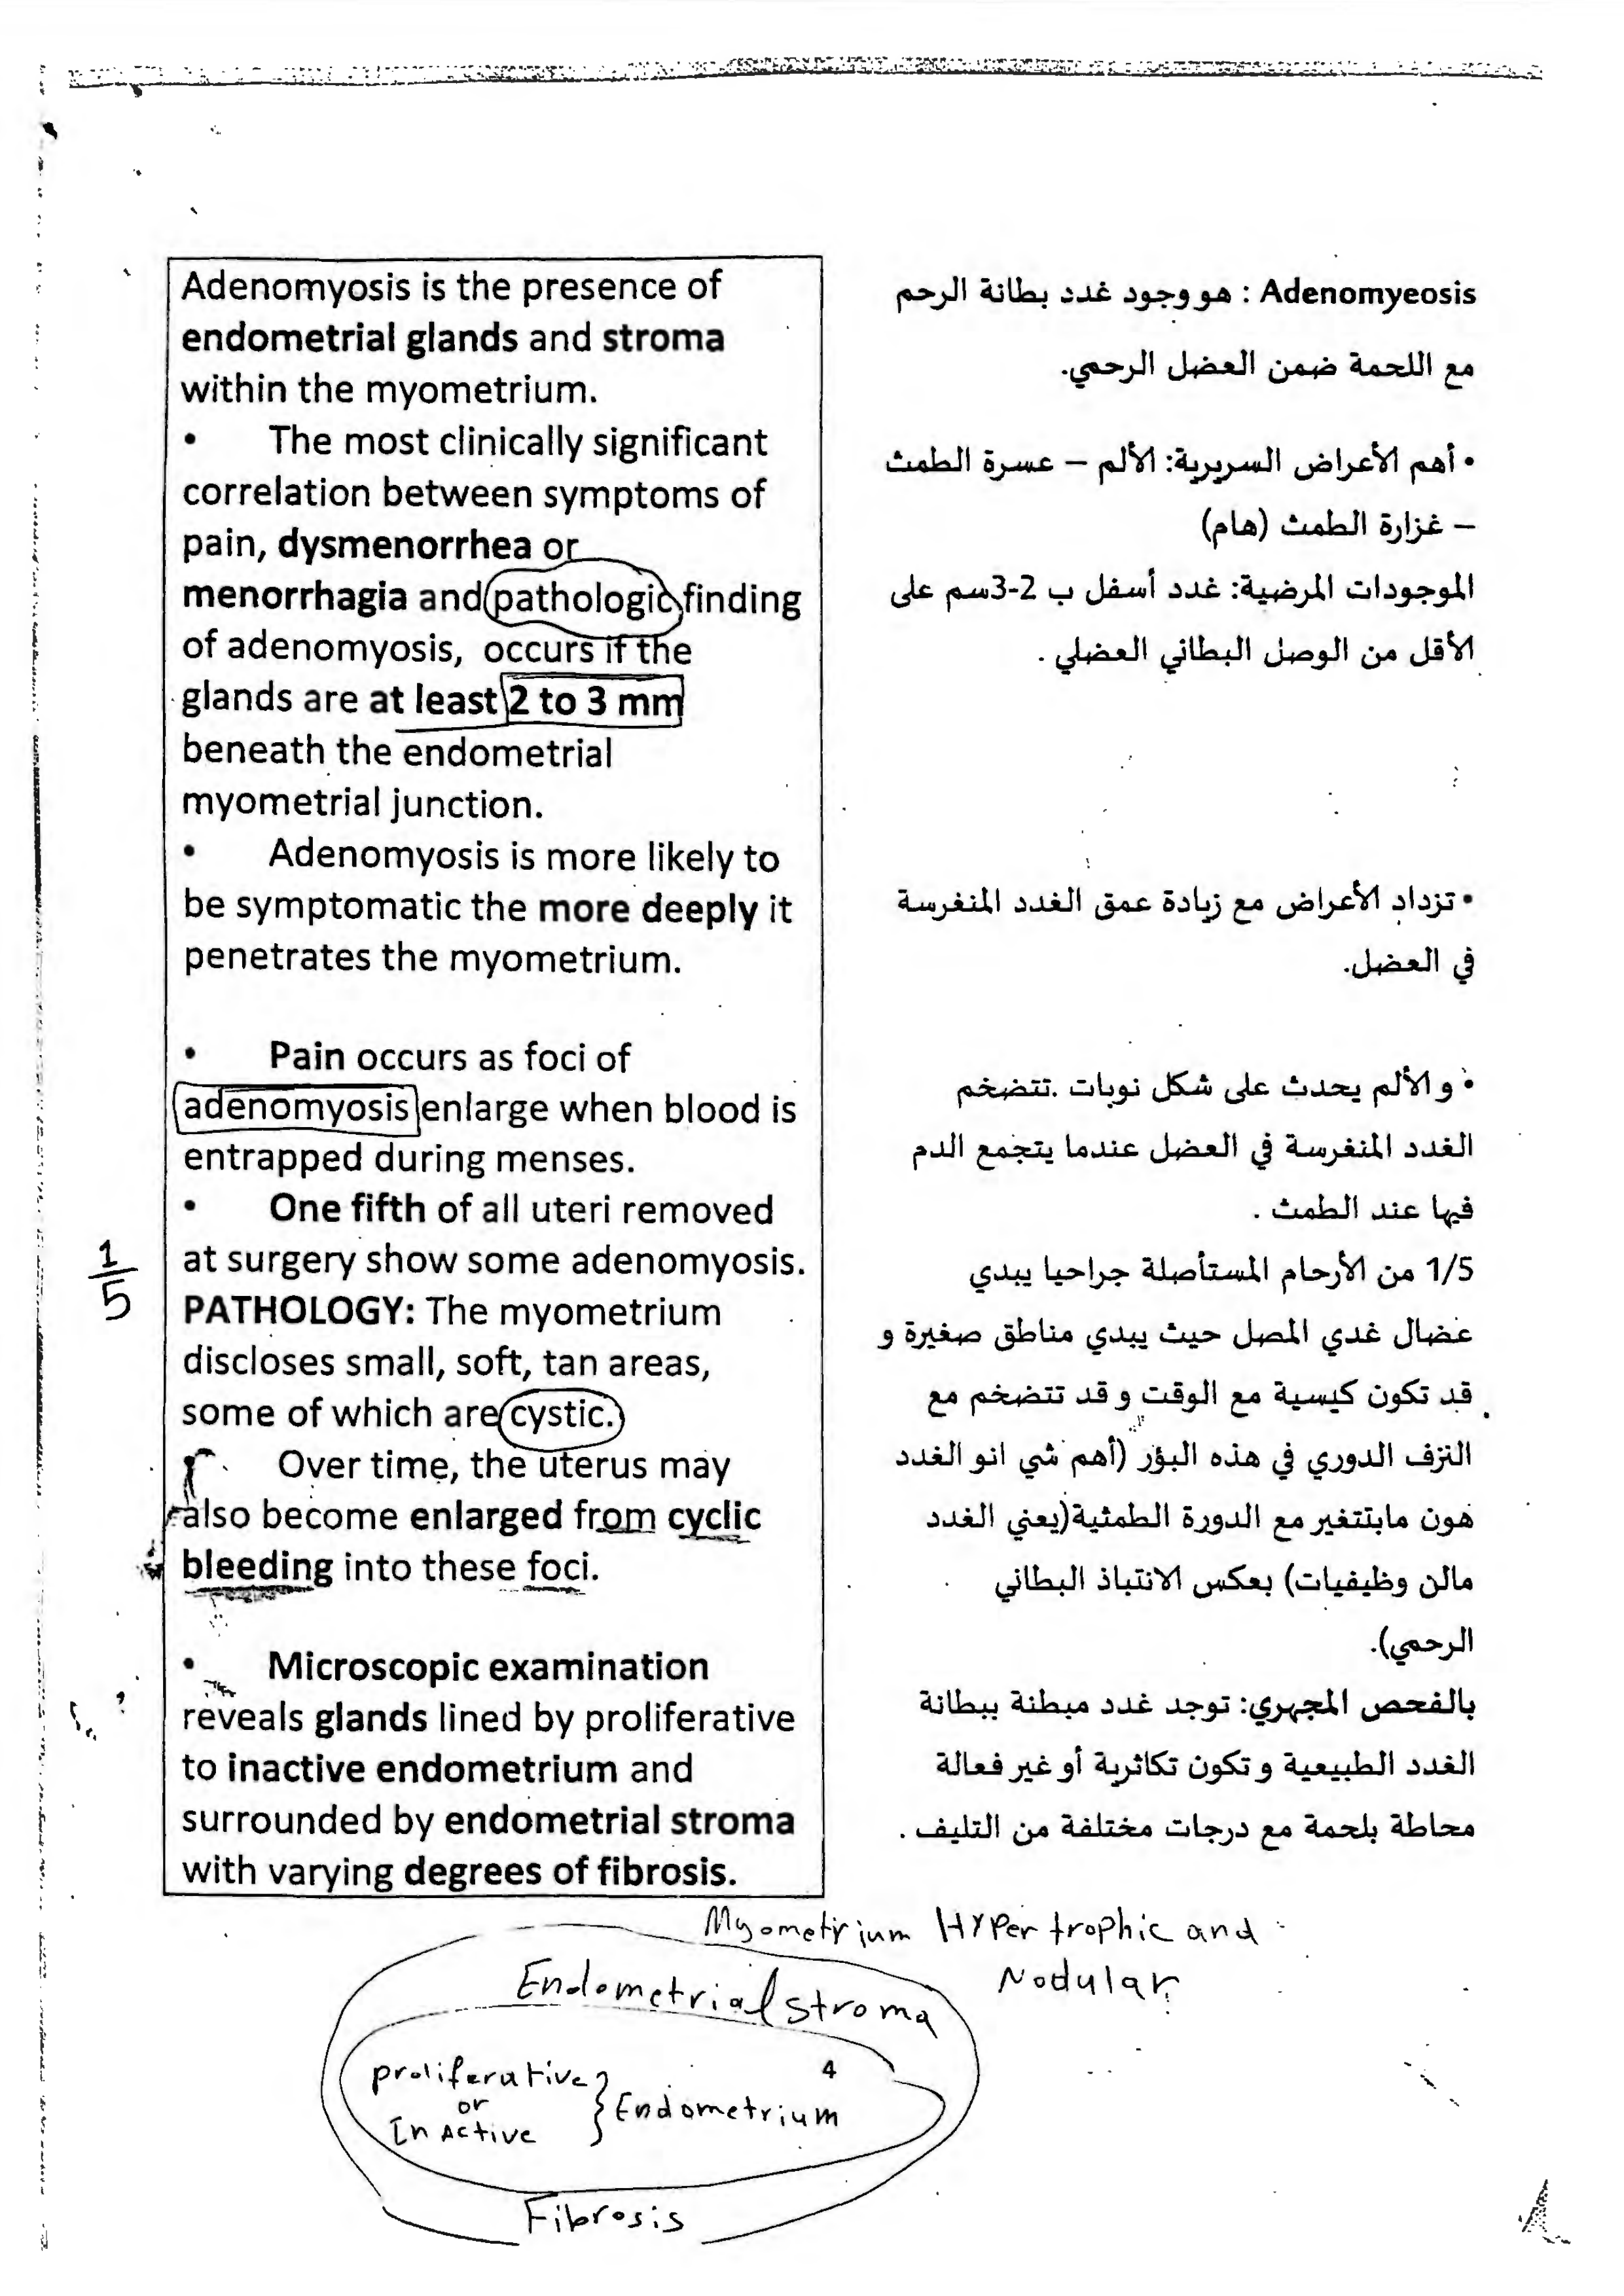 Adenomyosis is the presence of
endometrial glands and stroma
within the myometrium.
• The most clinically significant
correlation between symptoms of
pain, dysmenorrhea or
menorrhagia and pathologic finding
of adenomyosis, occurs if the
glands are at least 2 to 3 mm
beneath the endometrial
myometrial junction.
• Adenomyosis is more likely to
be symptomatic the more deeply it
penetrates the myometrium.
• Pain occurs as foci of
adenomyosis enlarge when blood is
entrapped during menses.
• One fifth of all uteri removed
at surgery show some adenomyosis.
1/5
PATHOLOGY: The myometrium
discloses small, soft, tan areas,
some of which are cystic.
Over time, the uterus may
also become enlarged from cyclic
bleeding into these foci.
• Microscopic examination
reveals glands lined by proliferative
to inactive endometrium and
surrounded by endometrial stroma
with varying degrees of fibrosis.
Adenomyeosis : هو وجود غدد بطانة الرحم
مع اللحمة ضمن العضل الرحمي.
• أهم الأعراض السريرية: الألم – عسرة الطمث
– غزارة الطمث (هام)
الموجودات المرضية: غدد أسفل ب 2-3سم على
الأقل من الوصل البطاني العضلي .
• تزداد الأعراض مع زيادة عمق الغدد المنغرسة
في العضل.
• و الألم يحدث على شكل نوبات .تتضخم
الغدد المنغرسة في العضل عندما يتجمع الدم
فيها عند الطمث .
1/5 من الأرحام المستأصلة جراحيا يبدي
عضال غدي المصل حيث يبدي مناطق صغيرة و
قد تكون كيسية مع الوقت و قد تتضخم مع
النزف الدوري في هذه البؤر (أهم شي انو الغدد
هون مابتتغير مع الدورة الطمثية(يعني الغدد
مالن وظيفيات) بعكس الانتباذ البطاني
الرحمي).
بالفحص المجهري: توجد غدد مبطنة ببطانة
الغدد الطبيعية و تكون تكاثرية أو غير فعالة
محاطة بلحمة مع درجات مختلفة من التليف .
Myometrium Hypertrophic and
Nodular
Endometrial stroma
4
proliferative
or
InActive
} Endometrium
Fibrosis